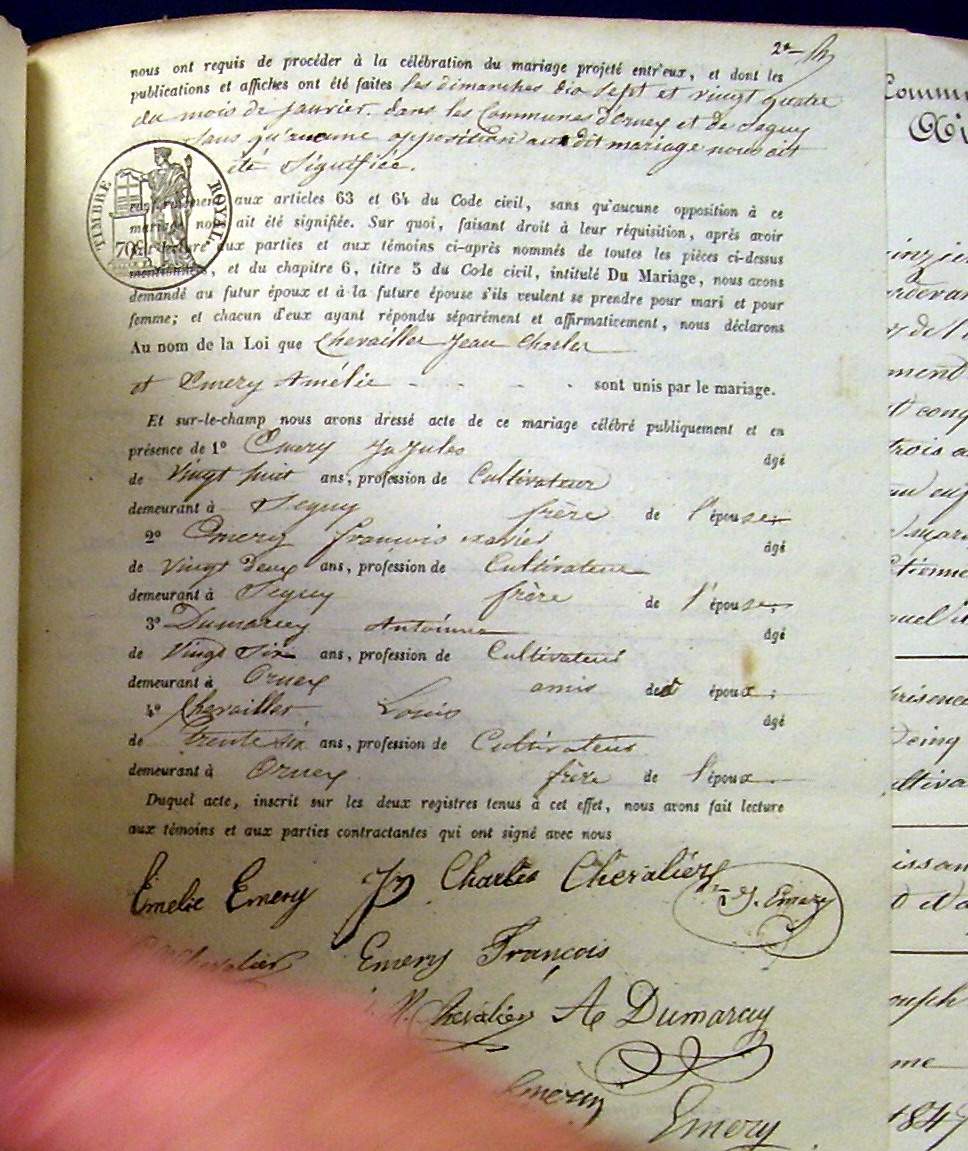 2e
nous ont requis de procéder à la célébration du mariage projeté entr'eux, et dont les
publications et affiches ont été faites les dimanches dix sept et vingt quatre
du mois de janvier dans les Communes d'Ornex et de Segny
sans qu'aucune opposition audit mariage nous ait
été signifiée.
TIMBRE ROYAL
70c
conformément aux articles 63 et 64 du Code civil, sans qu'aucune opposition à ce
mariage nous ait été signifiée. Sur quoi, faisant droit à leur réquisition, après avoir
lecture aux parties et aux témoins ci-après nommés de toutes les pièces ci-dessus
mentionnées, et du chapitre 6, titre 5 du Code civil, intitulé Du Mariage, nous avons
demandé au futur époux et à la future épouse s'ils veulent se prendre pour mari et pour
femme; et chacun d'eux ayant répondu séparément et affirmativement, nous déclarons
Au nom de la Loi que Chevailler Jean Charles
et Emery Amélie - - - - sont unis par le mariage.
Et sur-le-champ nous avons dressé acte de ce mariage célébré publiquement et en
présence de 1º Emery Jn Jules âgé
de vingt huit ans, profession de Cultivateur
demeurant à Segny frère de l'épouse;
2º Emery françois xavier âgé
de vingt deux ans, profession de Cultivateur
demeurant à Segny frère de l'épouse;
3º Dumarcey Antoinne âgé
de vingt six ans, profession de Cultivateur
demeurant à Ornex amis de époux;
4º Chevailler Louis âgé
de trente six ans, profession de Cultivateur
demeurant à Ornex frère de l'époux
Duquel acte, inscrit sur les deux registres tenus à cet effet, nous avons fait lecture
aux témoins et aux parties contractantes qui ont signé avec nous
Emelie Emery Jn Charles Chevalier J. Emery
Chevalier Emery François
Chevalier Ae Dumarcey
Emery
Emery